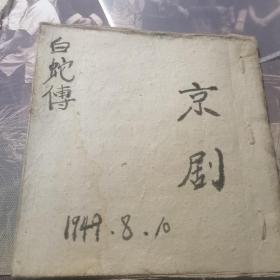 白蛇傳
京剧
1949.8.10